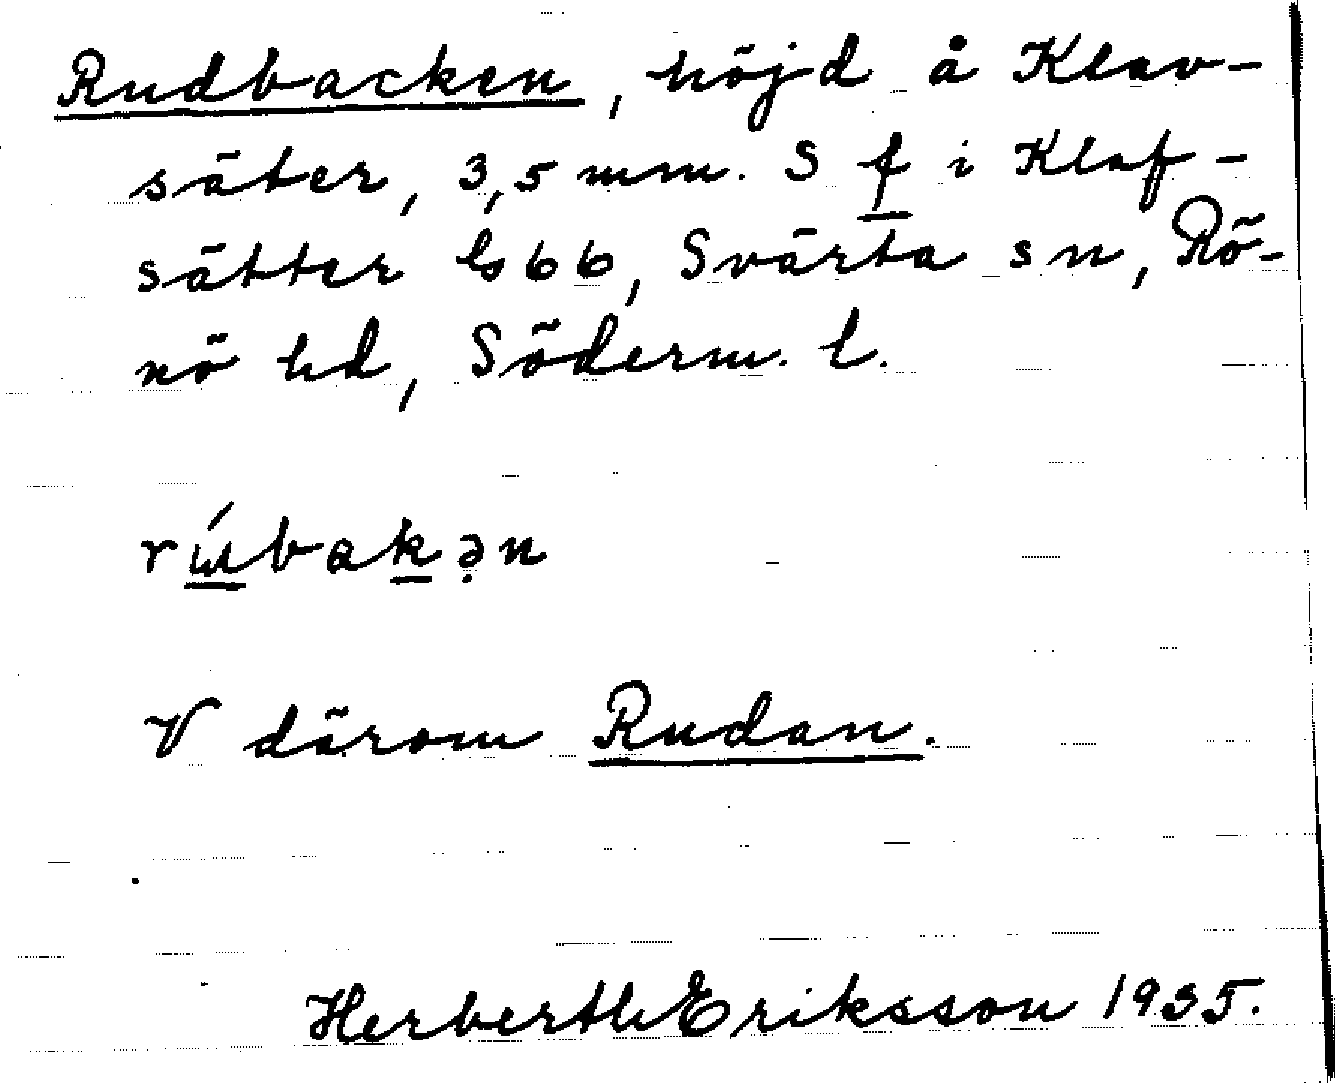 Rudbacken, höjd å Klav-
säter, 3,5 mm. S f i Klaf-
sätter G6b, Svärta sn, Rö-
nö hd, Söderm. l.
rɯ́bakə̣n
V därom Rudan.
Herberth Eriksson 1935.